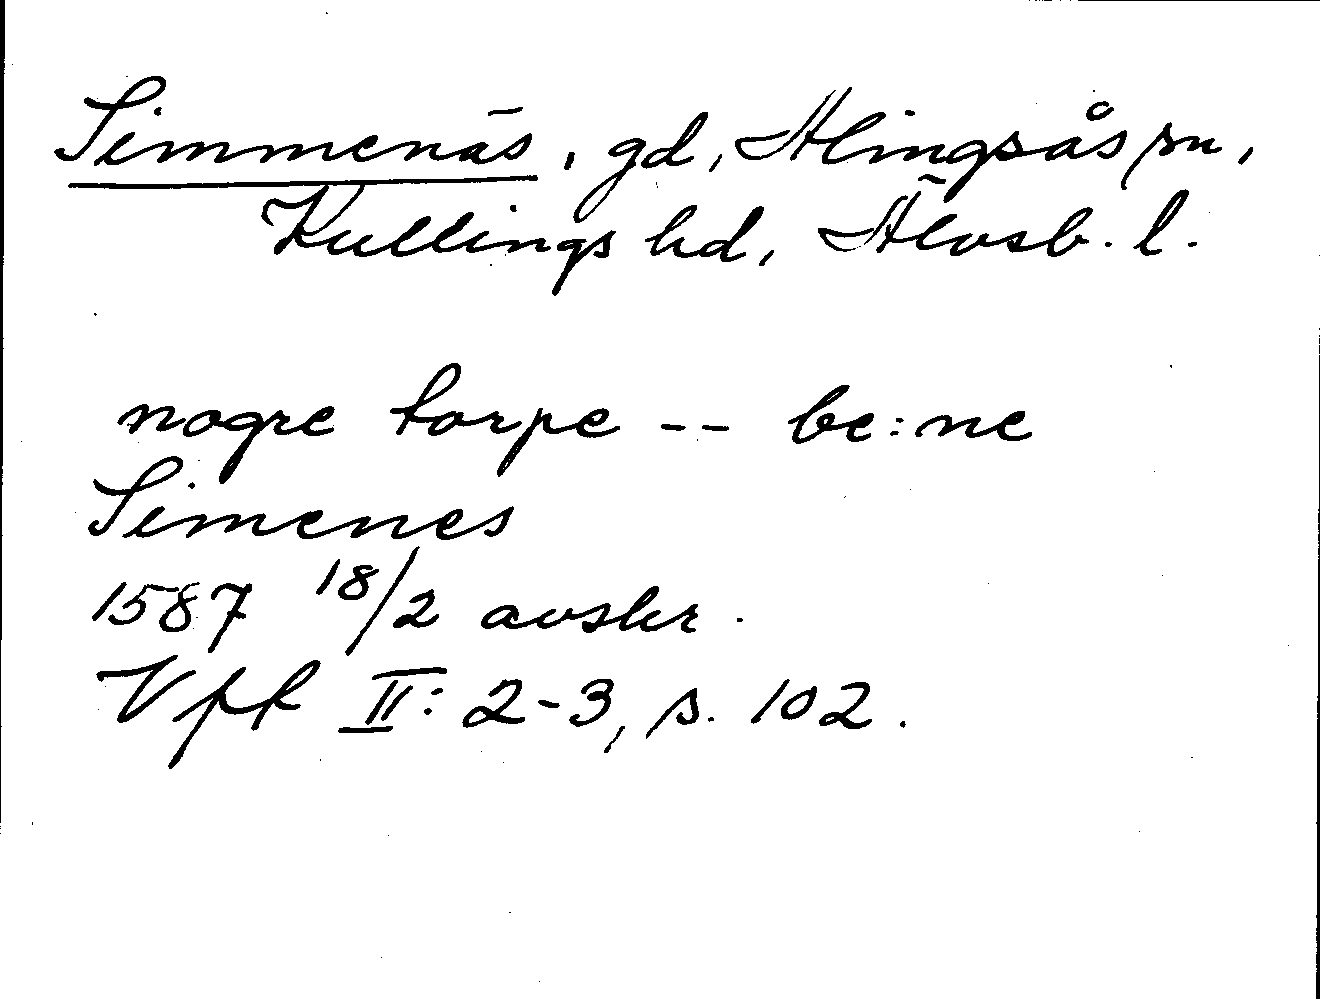 Simmenäs, gd, Alingsås sn,
Kullings hd, Älvsb. l.
nogre torpe -- be:ne
Simenes
1587 18/2 avskr.
Vpf II: 2-3, s. 102.